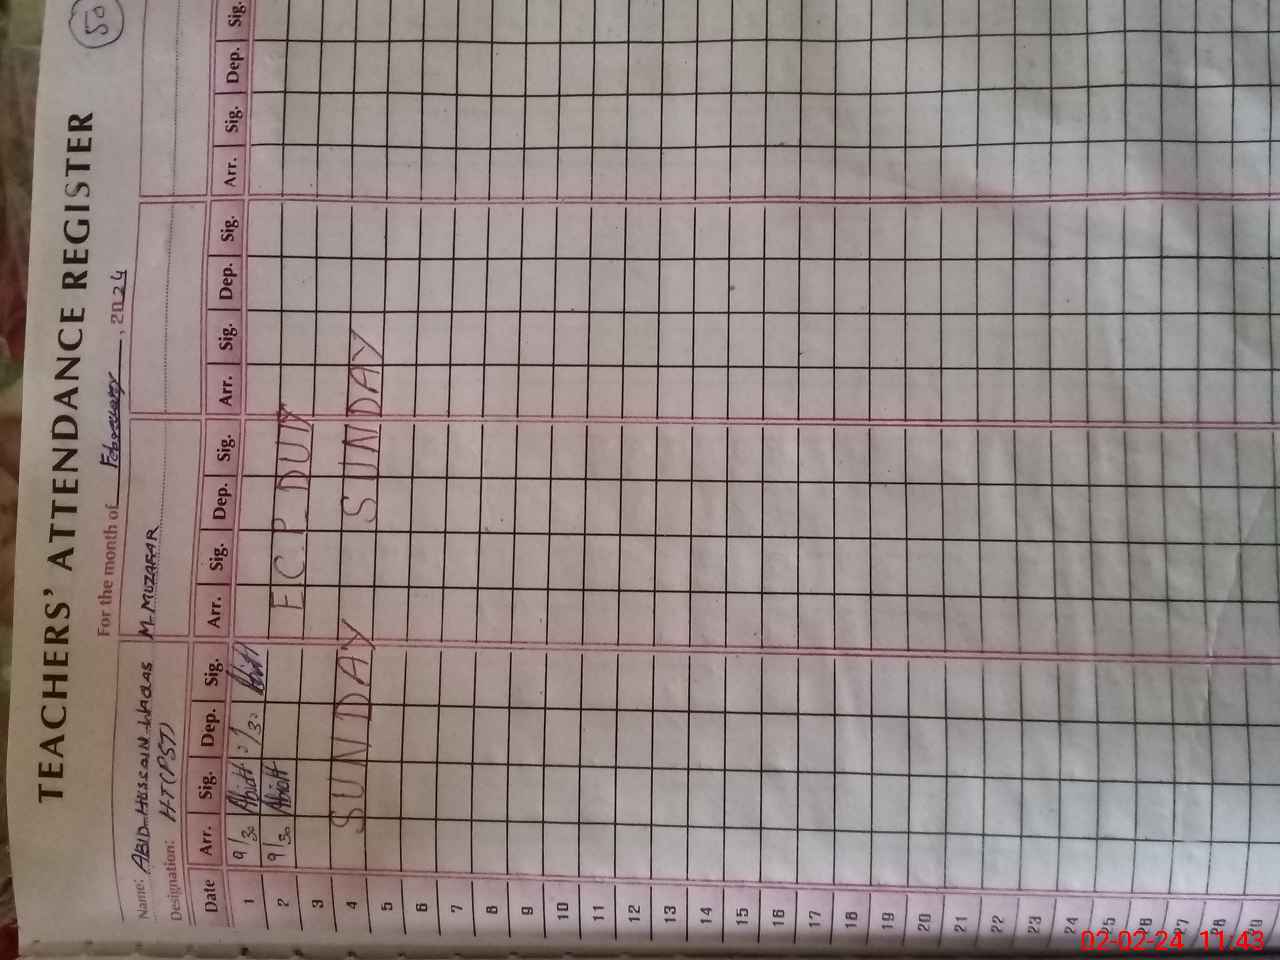 50
TEACHERS' ATTENDANCE REGISTER
For the month of February, 2024
Name: ABID HUSSAIN WAQAS M-MUZAFAR
Designation: HT(PST)
Date Arr. Sig. Dep. Sig. Arr. Sig. Dep. Sig. Arr. Sig. Dep. Sig. Arr. Sig. Dep. Sig.
1 9/30 /30
2 9/30 ECP DUTY
3
4 SUNDAY SUNDAY
5
6
7
8
9
10
11
12
13
14
15
16
17
18
19
20
21
22
23
24
25
26
27
28
29
02-02-24 11:43